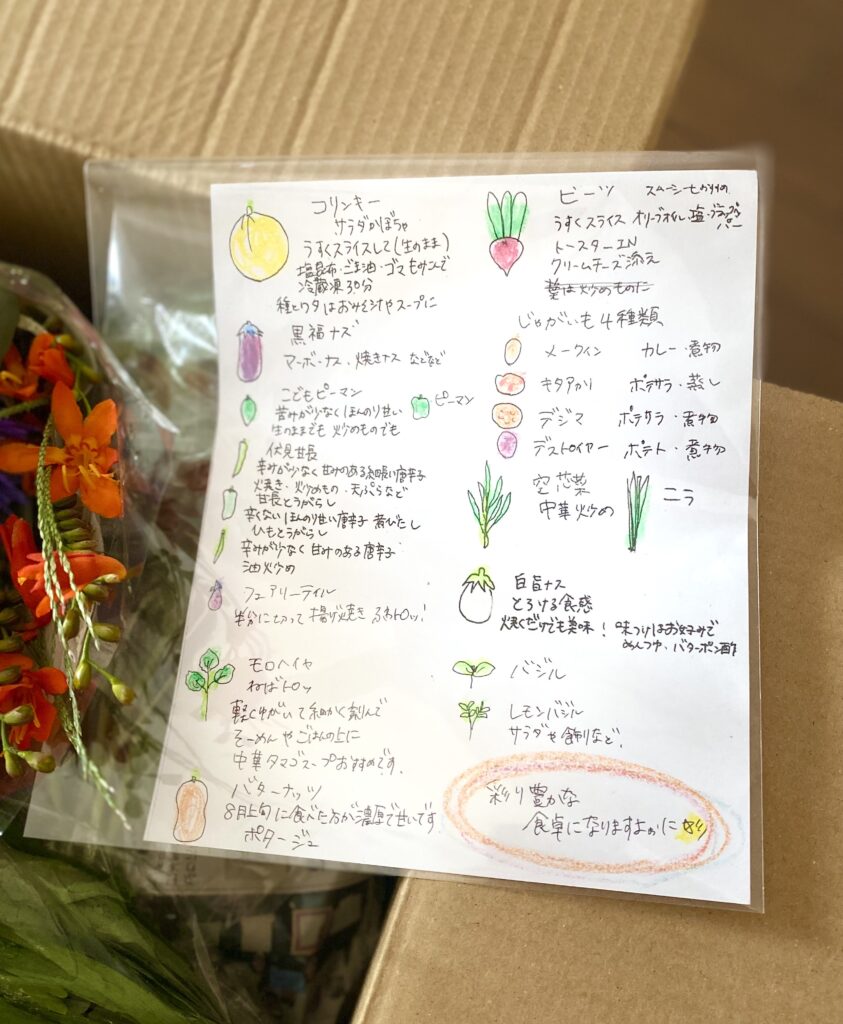 コリンキー
サラダかぼちゃ
うすくスライスして(生のまま)
塩昆布・ごま油・ゴマもみこんで
冷蔵凍30分
種とワタはおみそ汁やスープに
黒福ナス
マーボーナス、焼きナスなどなど
こどもピーマン
苦みが少なくほんのり甘い
生のままでも 炒めものでも
ピーマン
伏見甘長
辛みが少なく甘みのある細長い唐辛子
焼き・炒めもの・天ぷらなど
甘長とうがらし
辛くないほんのり甘い唐辛子 煮びたし
ひもとうがらし
辛みが少なく甘みのある唐辛子
油炒め
フェアリーテイル
半分に切って揚げ焼き ふわトロッ!
モロヘイヤ
ねばトロッ
軽くゆがいて細かく刻んで
そーめんやごはんの上に
中華タマゴスープおすすめです.
バターナッツ
8月上旬に食べた方が濃厚で甘いです
ポタージュ
ビーツ
スムージーもおすすめ
うすくスライス オリーブオイル 塩・ブラックペッパー
トースターIN
クリームチーズ添え
葉は炒めものに
じゃがいも4種類
メークイン カレー・煮物
キタアカリ ポテサラ・蒸し
デジマ ポテサラ・煮物
デストロイヤー ポテト・煮物
空芯菜
中華炒め
ニラ
白旨ナス
とろける食感
焼くだけでも美味! 味つけはお好みで
めんつゆ・バターポン酢
バジル
レモンバジル
サラダや飾りなど.
彩り豊かな
食卓になりますように